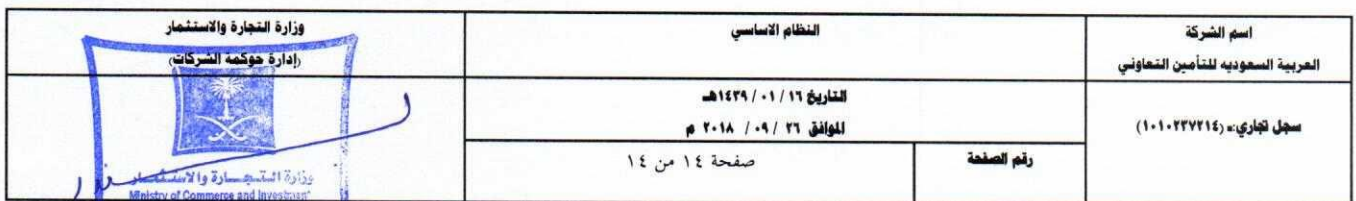 اسم الشركة
العربية السعوديه للتأمين التعاوني
النظام الاساسي
وزارة التجارة والاستثمار
(إدارة حوكمة الشركات)
سجل تجاري:ـ (١٠١٠٢٣٧٢١٤)
التاريخ ١٦ / ٠١ / ١٤٣٩هـ
الموافق ٢٦ / ٠٩ / ٢٠١٨ م
رقم الصفحة
صفحة ١٤ من ١٤
وزارة التجارة والاستثمار
Ministry of Commerce and Investment